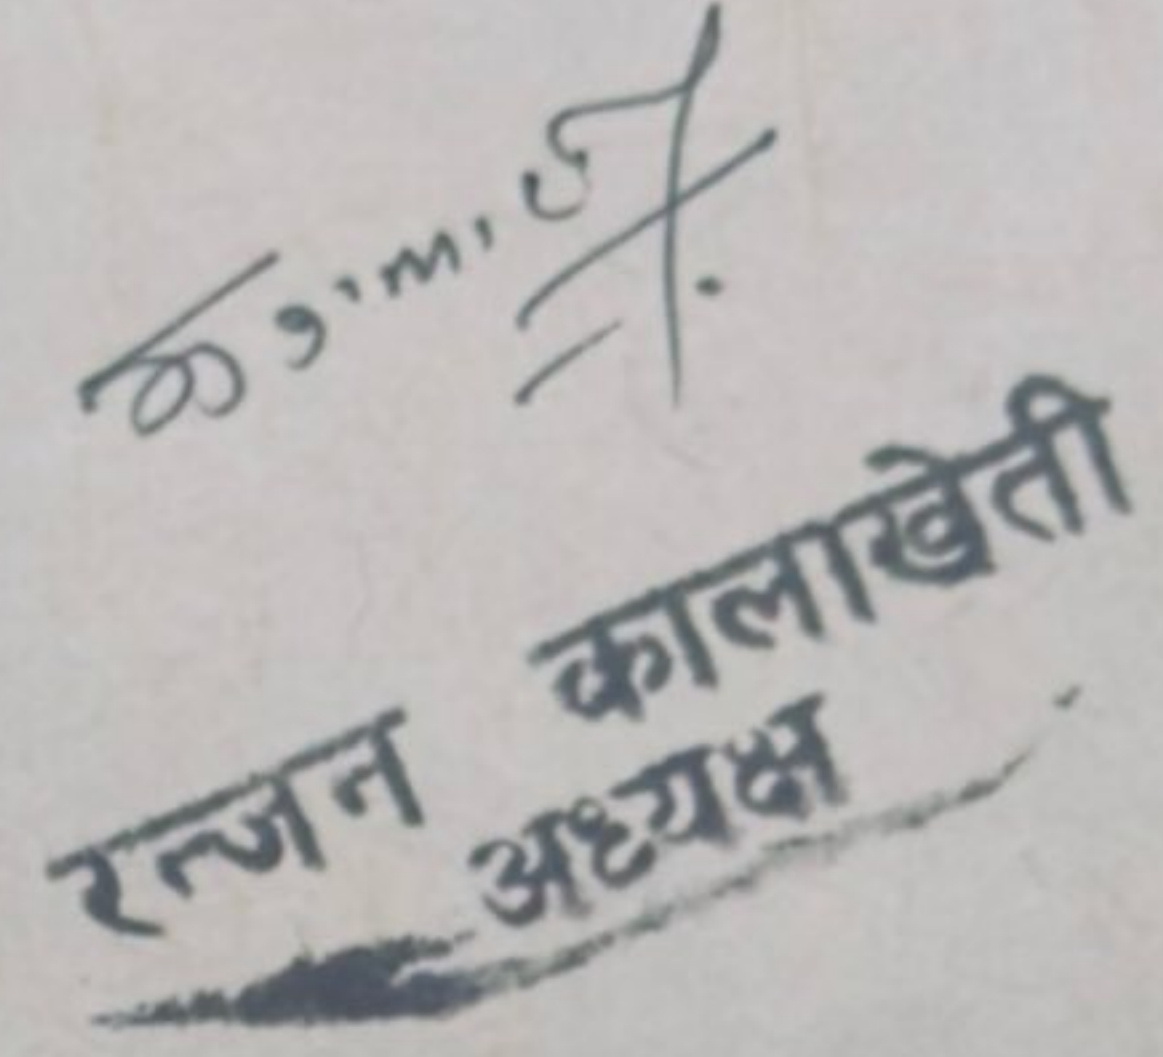 रन्जन कालाखेती
अध्यक्ष